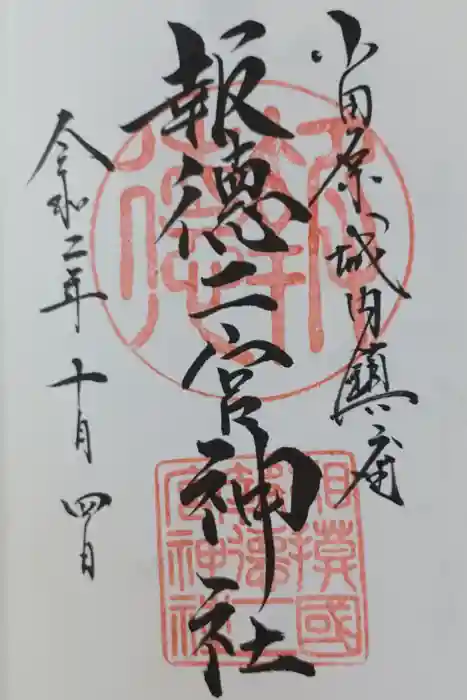 小田原城内鎮座
報徳二宮神社
令和二年十月四日
相模國
報徳二
宮神社